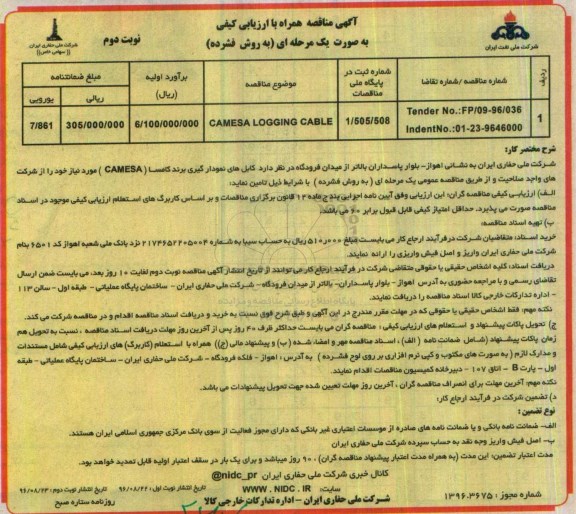 آگهی مناقصه همراه با ارزیابی کیفی
به صورت یک مرحله ای (به روش فشرده)
نوبت دوم
شرکت ملی نفت ایران
شرکت ملی حفاری ایران
(سهامی خاص)
ردیف
شماره مناقصه /شماره تقاضا
شماره ثبت در پایگاه ملی مناقصات
موضوع مناقصه
برآورد اولیه (ریال)
مبلغ ضمانتنامه
ریالی
یورویی
1
Tender No.:FP/09-96/036
IndentNo.:01-23-9646000
1/505/508
CAMESA LOGGING CABLE
6/100/000/000
305/000/000
7/861
شرح مختصر کار:
شرکت ملی حفاری ایران به نشانی اهواز- بلوار پاسداران بالاتر از میدان فرودگاه در نظر دارد کابل های نمودار گیری برند کامسا ( CAMESA ) مورد نیاز خود را از شرکت
های واجد صلاحیت و از طریق مناقصه عمومی یک مرحله ای ( به روش فشرده ) با شرایط ذیل تامین نماید:
الف) ارزیابی کیفی مناقصه گران: این ارزیابی وفق آیین نامه اجرایی بند ج ماده ۱۲ قانون برگزاری مناقصات و بر اساس کاربرگ های استعلام ارزیابی کیفی موجود در اسناد
مناقصه صورت می پذیرد. حداقل امتیاز کیفی قابل قبول برابر ۶۰ می باشد.
ب) تهیه اسناد مناقصه:
خرید اسناد: متقاضیان شرکت در فرآیند ارجاع کار می بایست مبلغ ۵۱۰٫۰۰۰ ریال به حساب سیبا به شماره ۲۱۷۴۶۵۲۲۰۵۰۰۴ نزد بانک ملی شعبه اهواز کد ۶۵۰۱ بنام
شرکت ملی حفاری ایران واریز و اصل فیش واریزی را ارائه نمایند.
دریافت اسناد: کلیه اشخاص حقیقی یا حقوقی متقاضی شرکت در فرآیند ارجاع کار می توانند از تاریخ انتشار آگهی مناقصه نوبت دوم لغایت ۱۰ روز بعد، می بایست ضمن ارسال
تقاضای رسمی و با مراجعه حضوری به آدرس اهواز - بلوار پاسداران- بالاتر از میدان فرودگاه- شرکت ملی حفاری ایران - ساختمان پایگاه عملیاتی - طبقه اول - سالن ۱۱۳
- اداره تدارکات خارجی کالا اسناد مناقصه را دریافت نمایند.
نکته مهم: فقط اشخاص حقیقی یا حقوقی که در مهلت مقرر مندرج در این آگهی و طبق شرح فوق نسبت به خرید و دریافت اسناد مناقصه اقدام و در مناقصه شرکت می کند.
ج) تحویل پاکات پیشنهاد و استعلام های ارزیابی کیفی : مناقصه گران می بایست حداکثر ظرف ۴۰ روز پس از آخرین روز مهلت دریافت اسناد مناقصه ، نسبت به تحویل هم
زمان پاکات پیشنهاد (شامل ضمانت نامه ( الف) ، اسناد مناقصه مهر و امضاء شده (ب) و پیشنهاد مالی (ج)) همراه با استعلام (کاربرگ) های ارزیابی کیفی شامل مستندات
و مدارک لازم ( به صورت های مکتوب و کپی نرم افزاری بر روی لوح فشرده ) به آدرس : اهواز - فلکه فرودگاه - شرکت ملی حفاری ایران - ساختمان پایگاه عملیاتی - طبقه
اول - پارت B - اتاق ۱۰۷ - دبیرخانه کمیسیون مناقصات اقدام نمایند.
نکته مهم: آخرین مهلت برای انصراف مناقصه گران ، آخرین روز مهلت تعیین شده جهت تحویل پیشنهادات می باشد.
د) تضمین شرکت در فرآیند ارجاع کار:
نوع تضمین :
الف- ضمانت نامه بانکی و یا ضمانت نامه های صادره از موسسات اعتباری غیر بانکی که دارای مجوز فعالیت از سوی بانک مرکزی جمهوری اسلامی ایران هستند.
ب- اصل فیش واریز وجه نقد به حساب سپرده شرکت ملی حفاری ایران
مدت اعتبار تضمین: این مدت (به همراه مدت اعتبار پیشنهاد مناقصه گران) ، ۹۰ روز میباشد و برای یک بار در سقف اعتبار اولیه قابل تمدید خواهد بود.
کانال خبری شرکت ملی حفاری ایران @nidc_pr
سایت: WWW . NIDC . IR
شرکت ملی حفاری ایران - اداره تدارکات خارجی کالا
شماره مجوز : ۱۳۹۶.۳۶۷۵
تاریخ انتشار نوبت اول : ۹۶/۰۸/۲۲
تاریخ انتشار نوبت دوم : ۹۶/۰۸/۲۳
روزنامه ستاره صبح